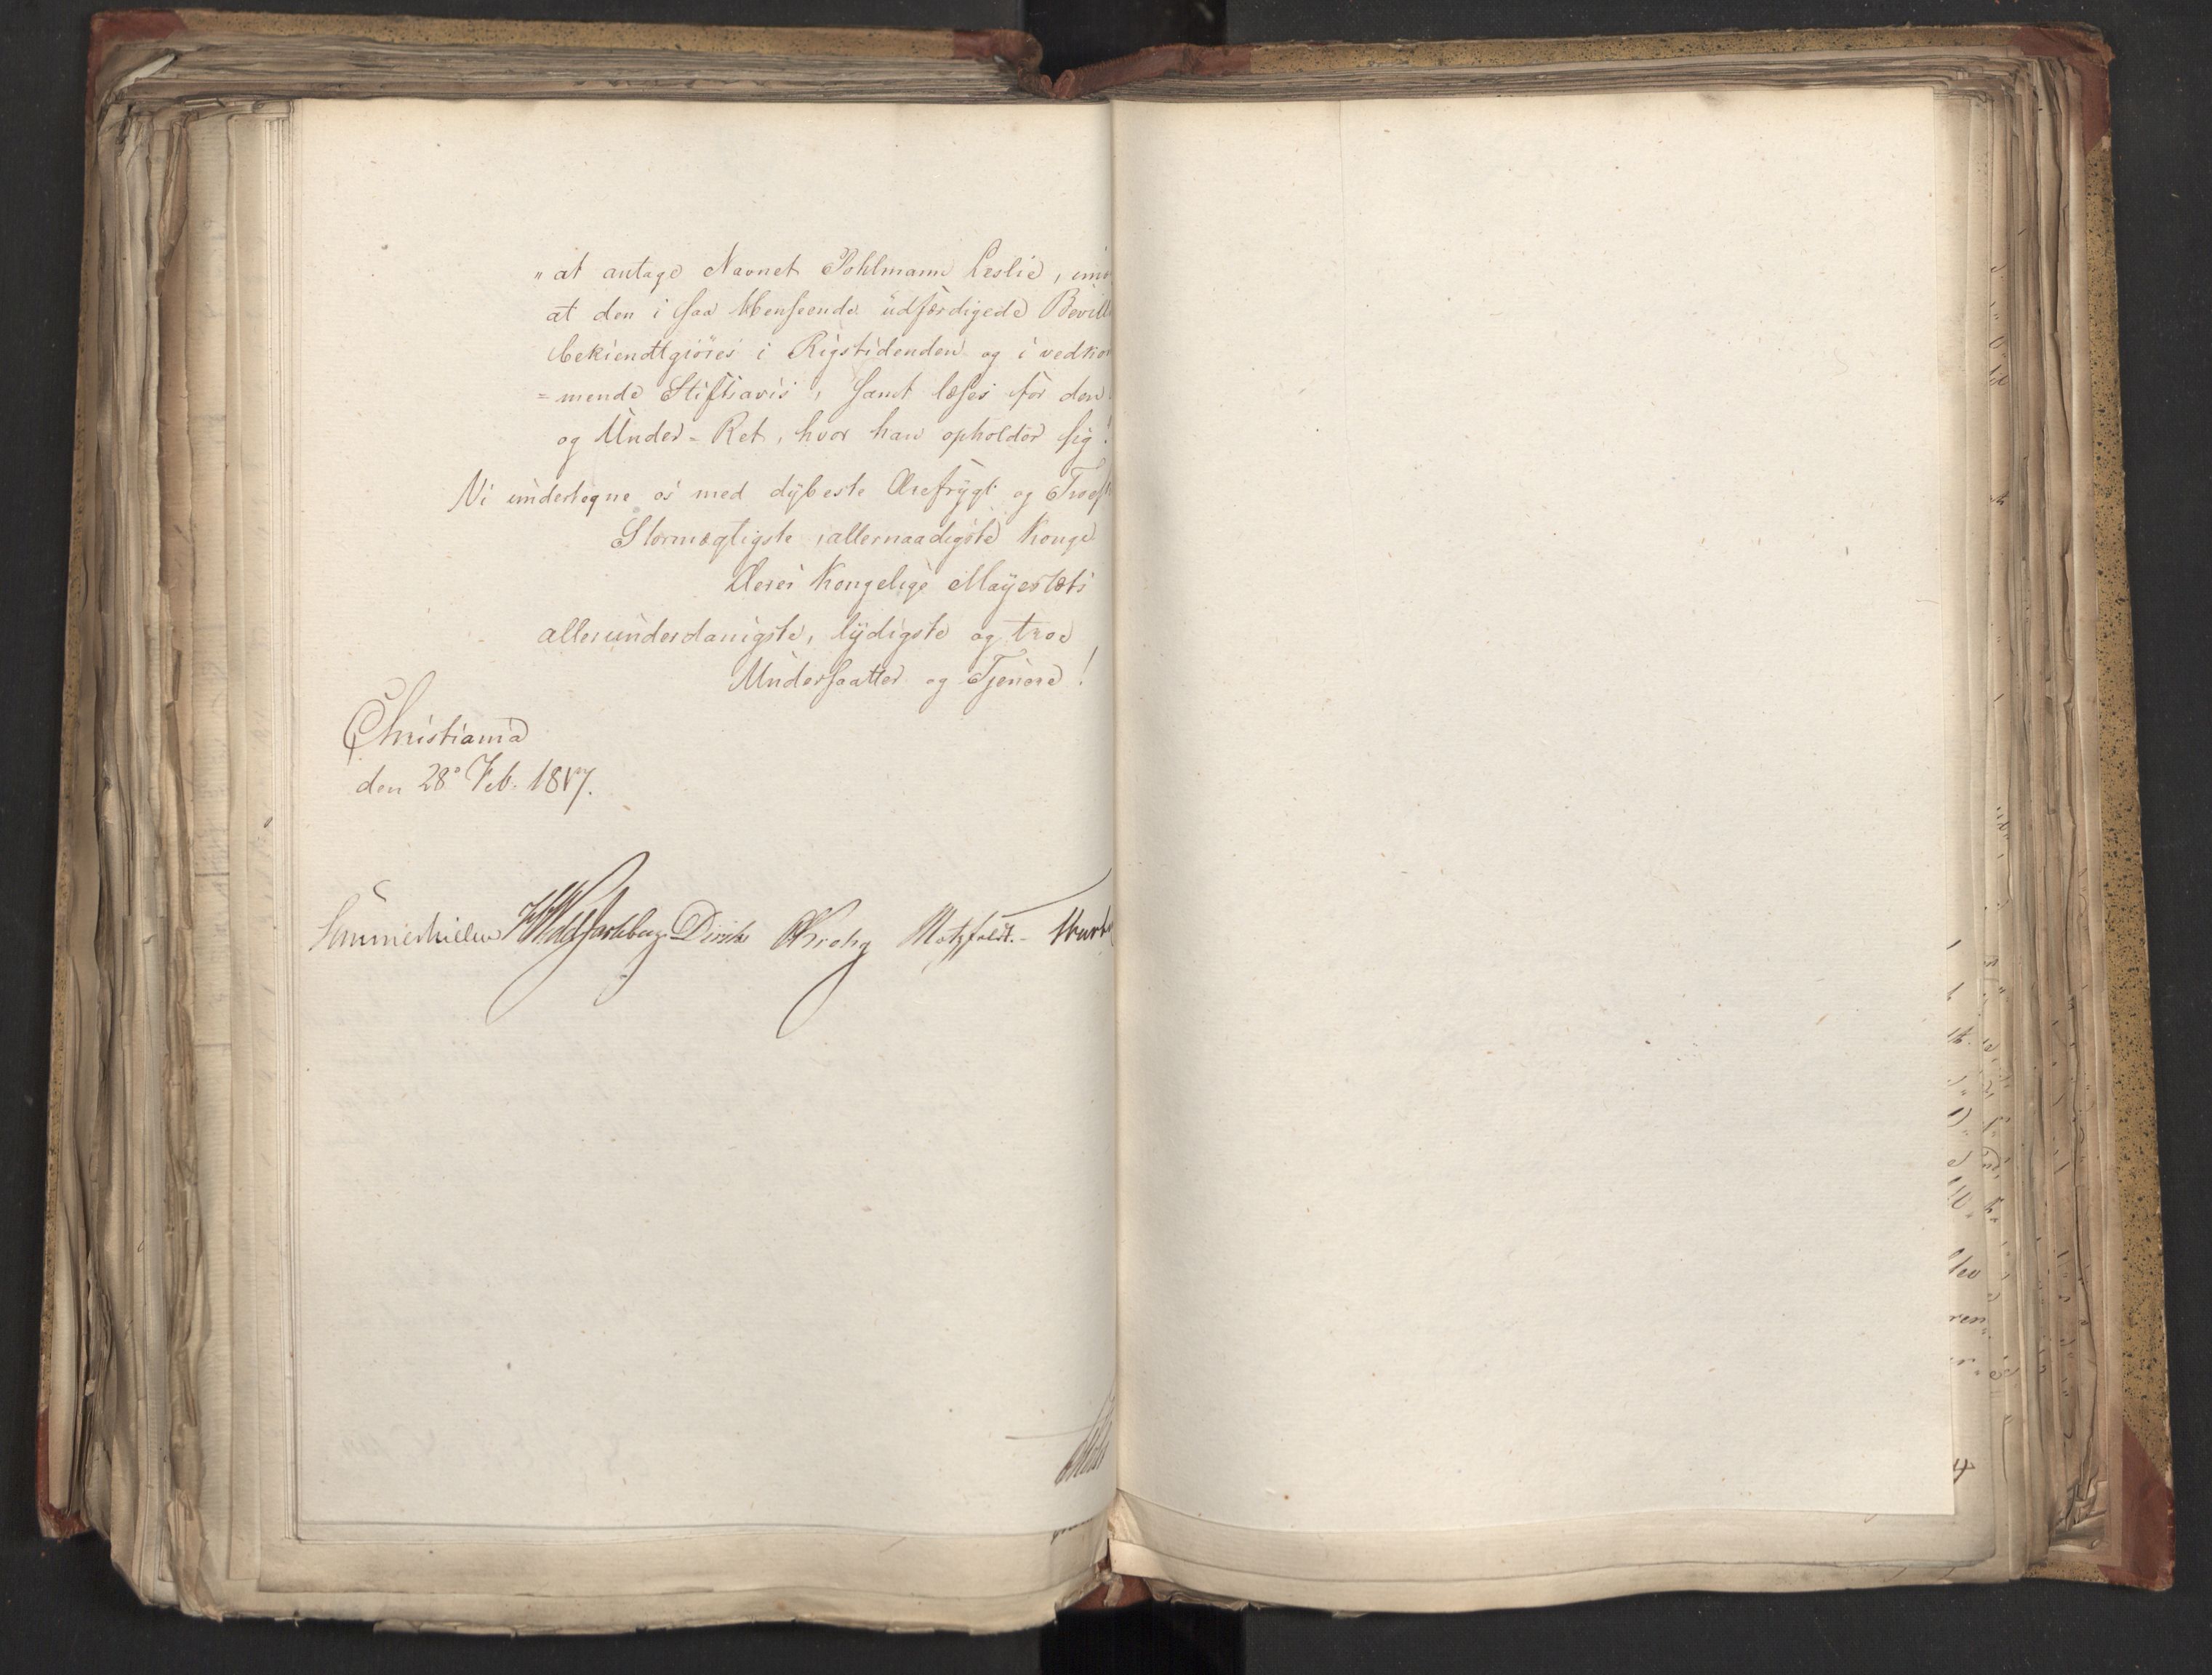 "at antage Navnet Pohlmann Leslie, imo
at den i saa Henseende udfærdigede Bevill
bekiendtgiöres i Rigstidenden og i vedkom
=mende Stiftsavis, samt læses for den
og Under=Ret, hvor han opholder sig!
Vi undertegne os med dÿbeste Ærefrÿgt og Troesk
Stormægtigste, allernaadigste Konge
Deres Kongelige Mayestæts
allerunderdanigste, lÿdigste og troe
Undersaatter og Tjenere!
Christiania
den 28de Feb. 1817.
Sommerhielm Diriks Krohg Motzfeldt.-